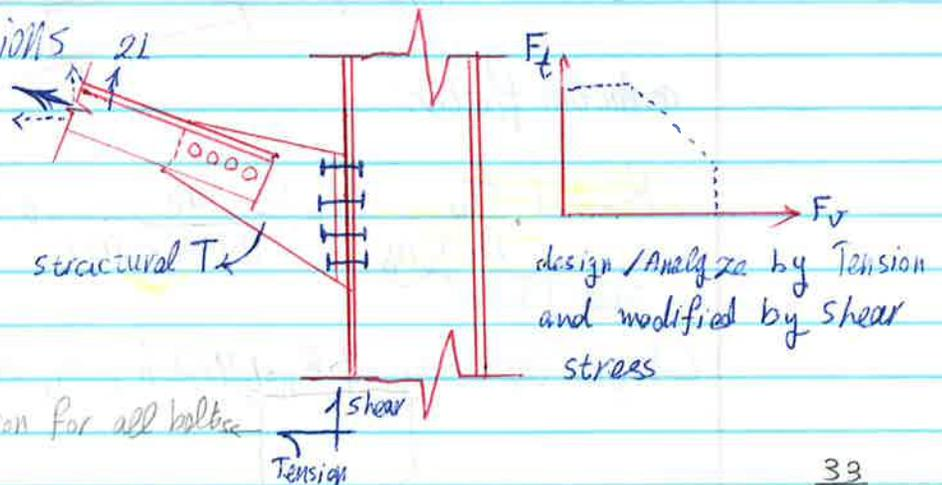 ions
2L
structural T
F_t
F_v
design / Analyze by Tension
and modified by shear
stress
on for all bolts
shear
Tension
33